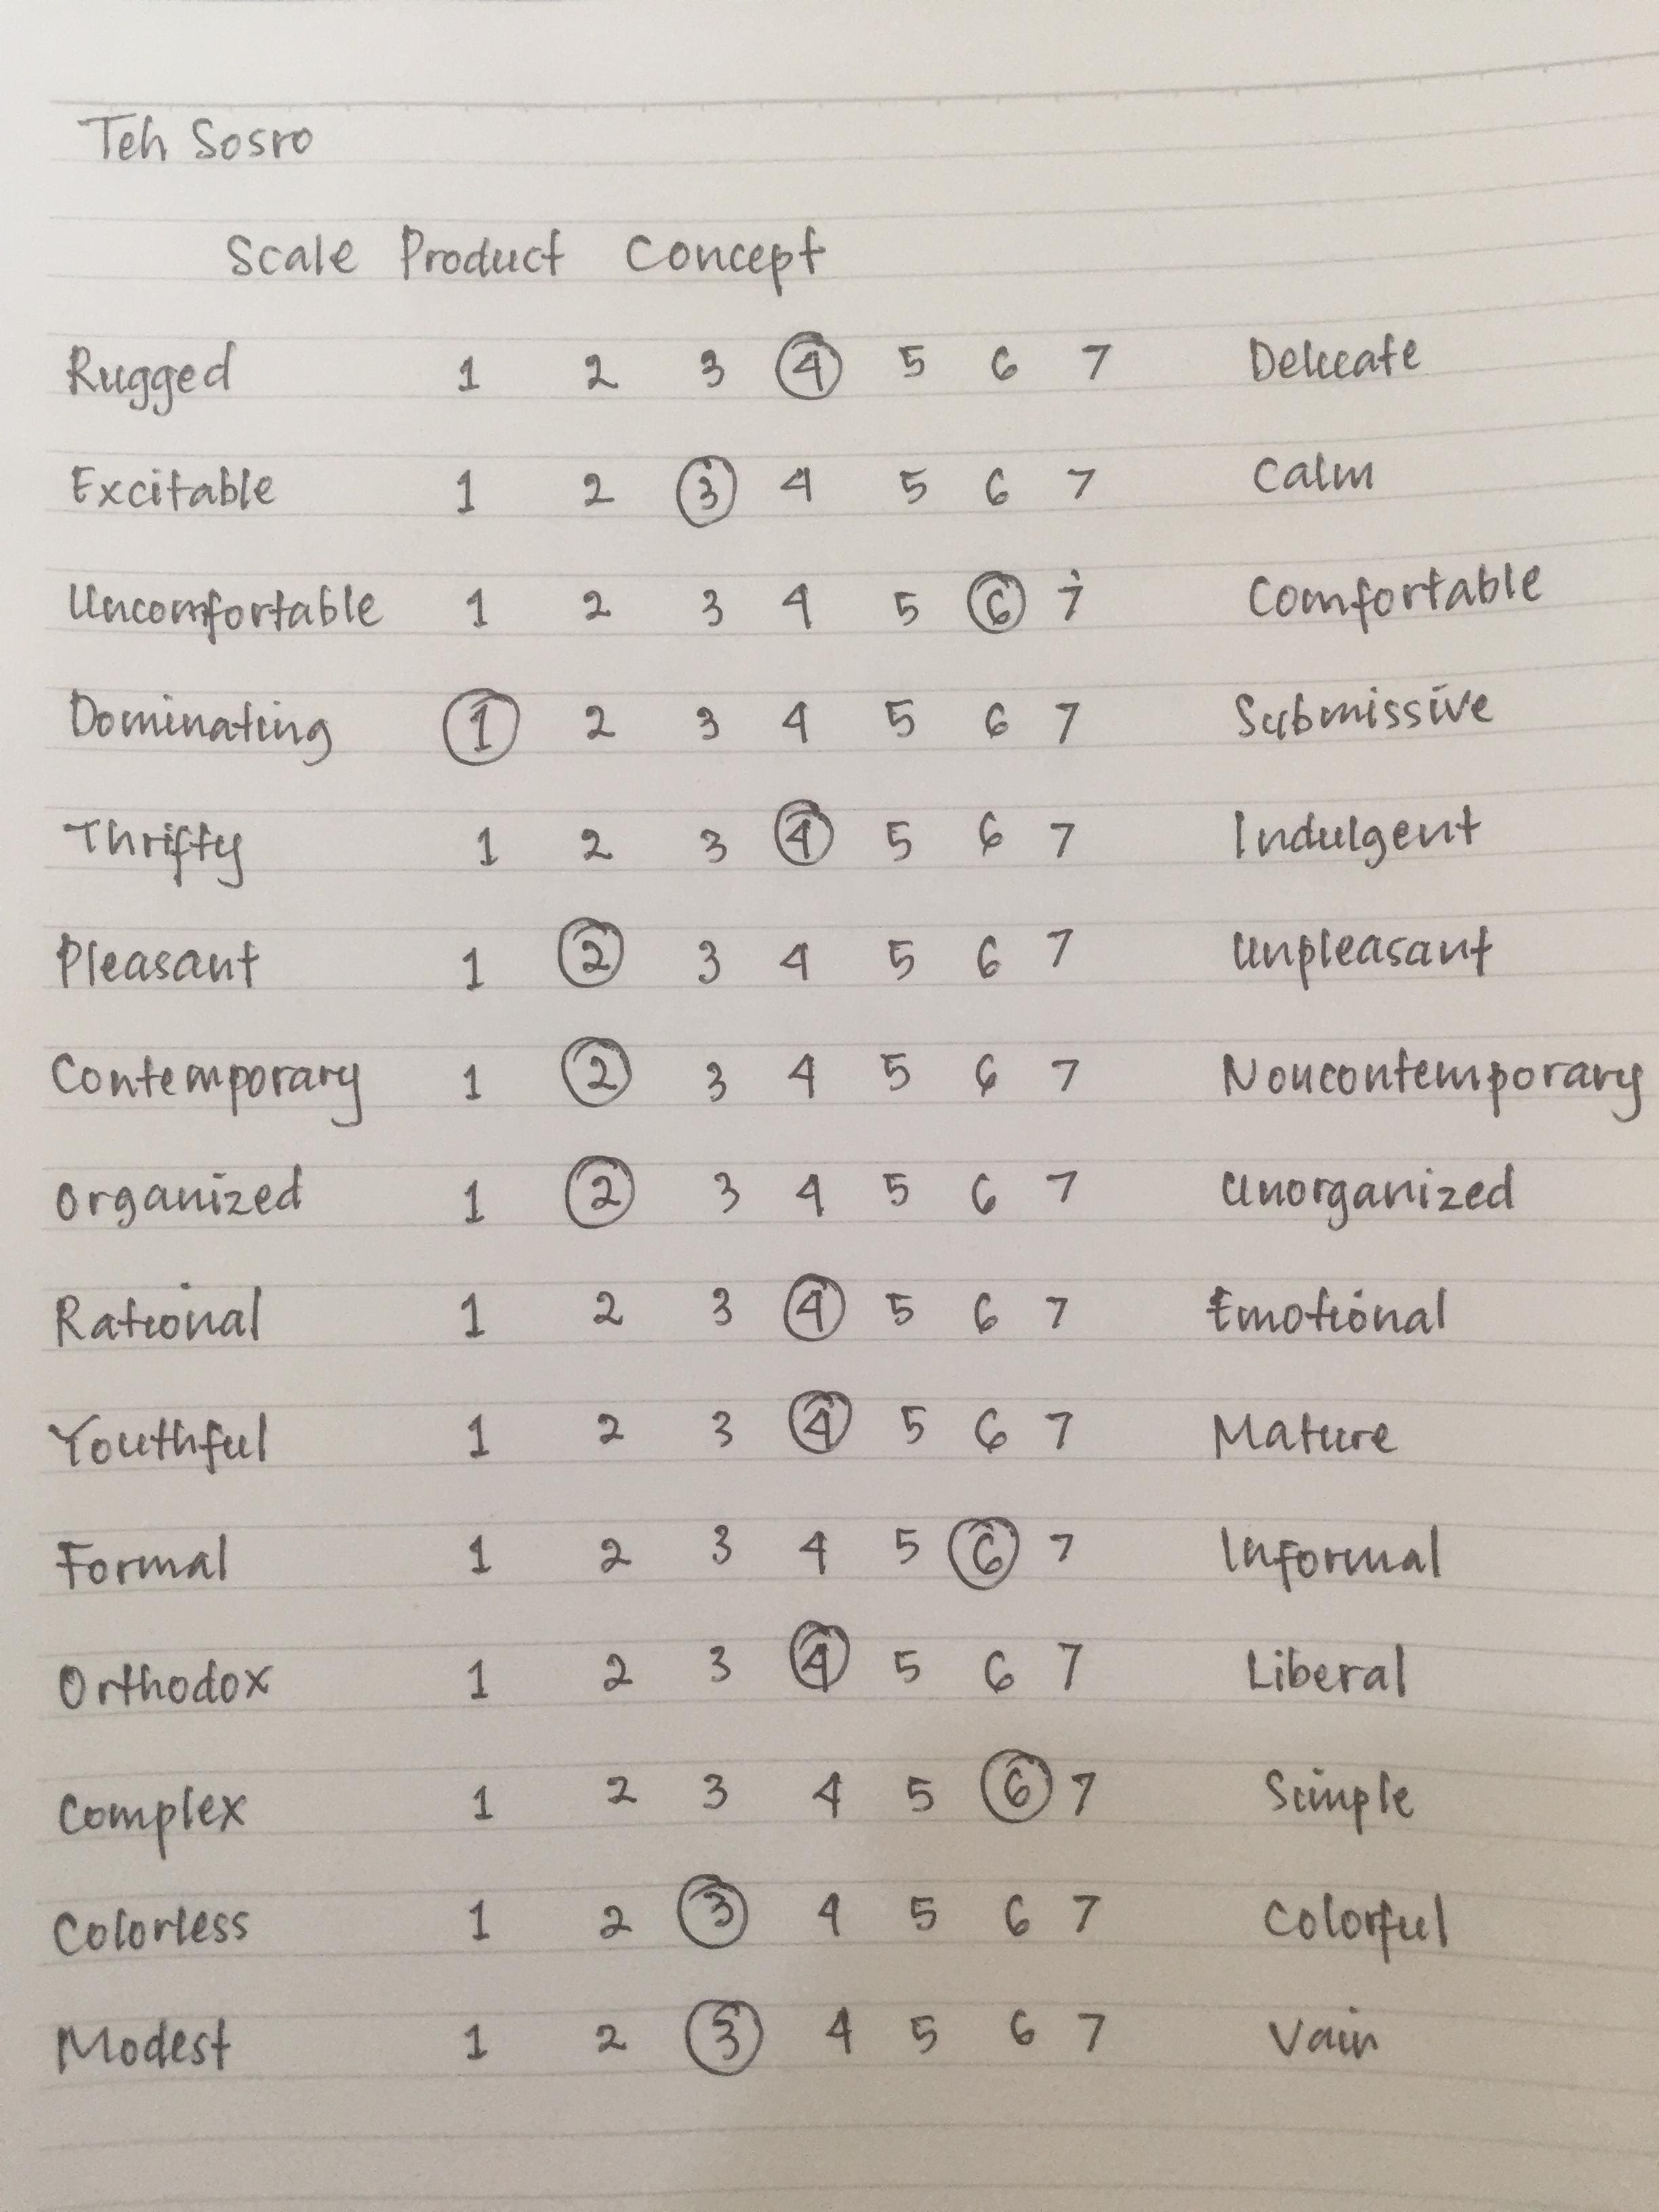 Teh Sosro
Scale Product Concept
Rugged 1 2 3 4 5 6 7 Delicate
Excitable 1 2 3 4 5 6 7 Calm
Uncomfortable 1 2 3 4 5 6 7 Comfortable
Dominating 1 2 3 4 5 6 7 Submissive
Thrifty 1 2 3 4 5 6 7 Indulgent
Pleasant 1 2 3 4 5 6 7 Unpleasant
Contemporary 1 2 3 4 5 6 7 Noncontemporary
Organized 1 2 3 4 5 6 7 Unorganized
Rational 1 2 3 4 5 6 7 Emotional
Youthful 1 2 3 4 5 6 7 Mature
Formal 1 2 3 4 5 6 7 Informal
Orthodox 1 2 3 4 5 6 7 Liberal
Complex 1 2 3 4 5 6 7 Simple
Colorless 1 2 3 4 5 6 7 Colorful
Modest 1 2 3 4 5 6 7 Vain